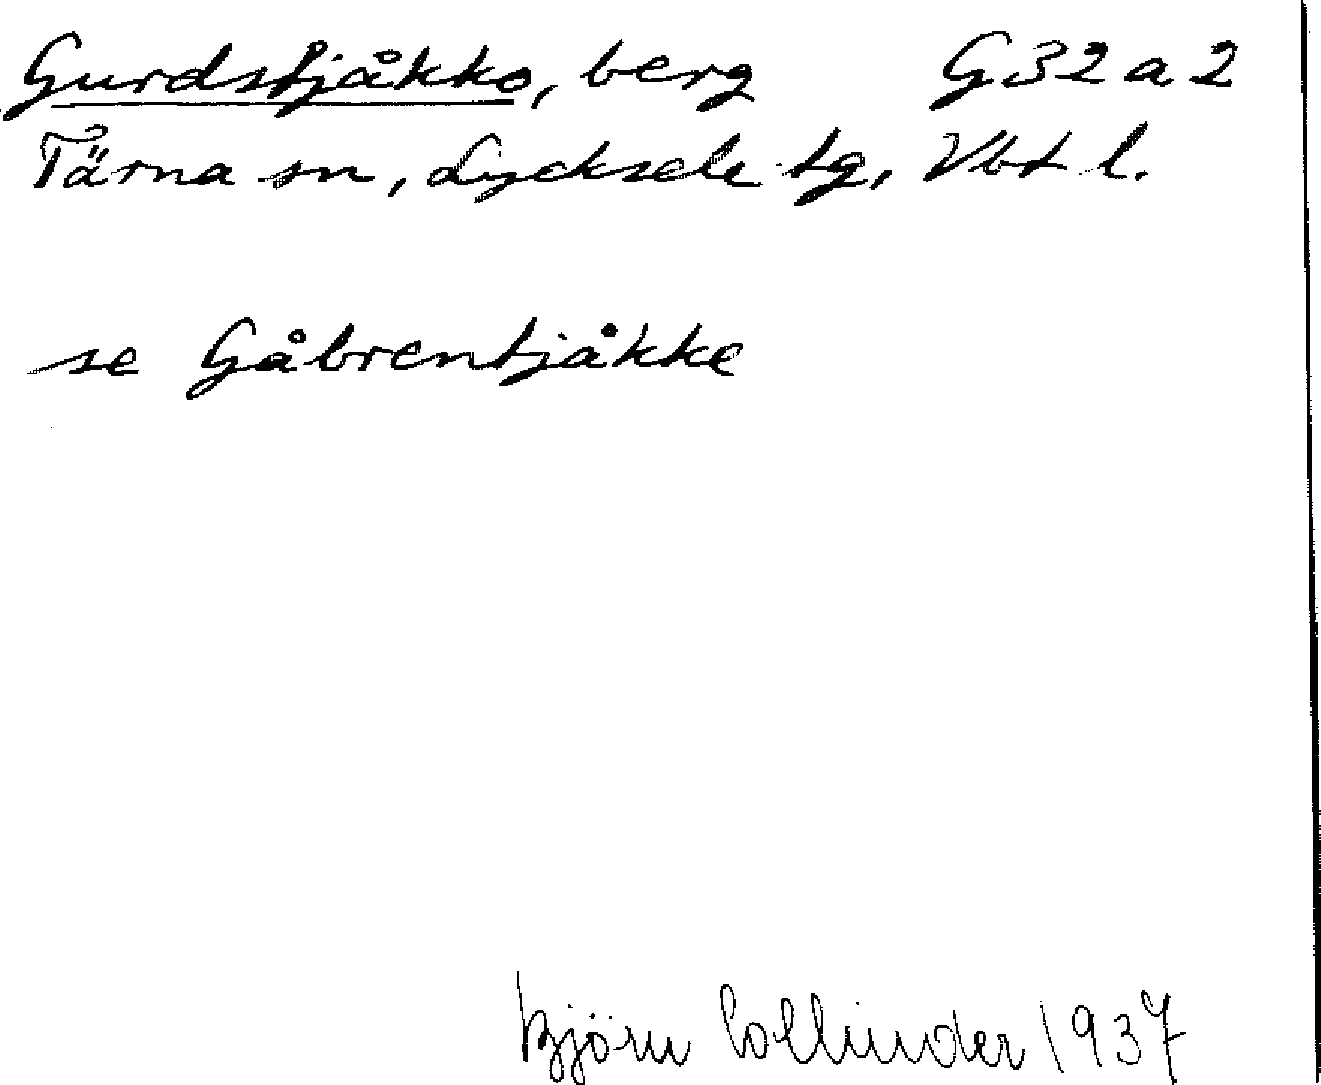 Gurdstjåkko, berg G32a2
Tärna sn, Lycksele tg, Vbt l.
se Gåbrentjåkke
Björn Collinder 1937